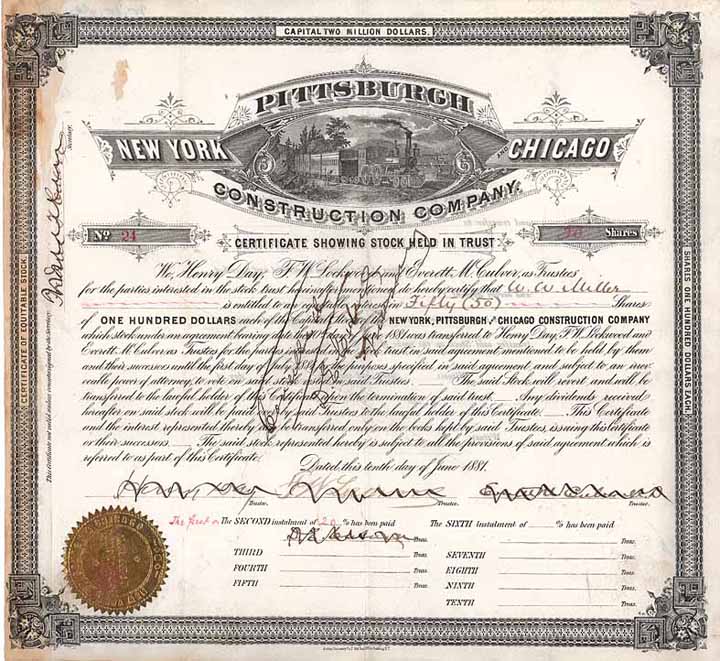 CAPITAL TWO MILLION DOLLARS.
PITTSBURGH
NEW YORK CHICAGO
CONSTRUCTION COMPANY.
No. 24 Shares
CERTIFICATE SHOWING STOCK HELD IN TRUST
We, Henry Day, F. W. Lockwood and Everett M. Culver, as Trustees
for the parties interested in the stock trust hereinafter mentioned, do hereby certify that W. W. Miller
is entitled to an interest in Fifty (50) Shares
of ONE HUNDRED DOLLARS each of the Capital Stock of the NEW YORK, PITTSBURGH AND CHICAGO CONSTRUCTION COMPANY
which stock under an agreement bearing date 1881 was transferred to Henry Day, F. W. Lockwood and
Everett M. Culver as Trustees for the parties in trust in said agreement mentioned to be held by them
and their successors until the first day of the purposes specified in said agreement and subject to an irrev-
ocable power of attorney, to vote on said stock said Trustees. The said Stock will revert and will be
transferred to the lawful holder of this Certificate on the termination of said trust. Any dividends received
hereafter on said stock will be paid over by Trustees to the lawful holder of this Certificate. This Certificate
and the interest represented thereby will be transferred only on the books kept by said Trustees, issuing this Certificate
or their successors. The said stock represented hereby is subject to all the provisions of said agreement which is
referred to as part of this Certificate.
Dated this tenth day of June 1881.
Trustee. Trustee. Trustee.
The first & The SECOND instalment of 20 % has been paid
Treas.
THIRD Treas.
FOURTH Treas.
FIFTH Treas.
The SIXTH instalment of % has been paid
Treas.
SEVENTH Treas.
EIGHTH Treas.
NINTH Treas.
TENTH Treas.
CERTIFICATE OF EQUITABLE STOCK.
This Certificate not valid unless countersigned by the Secretary.
Secretary.
SHARES ONE HUNDRED DOLLARS EACH.